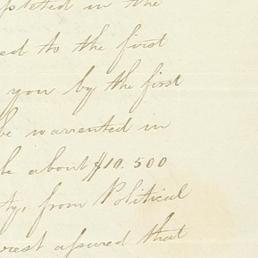 pleted in the
ed to the first
you by the first
be warrented in
about $10.500
ty, from Political
rest assured that